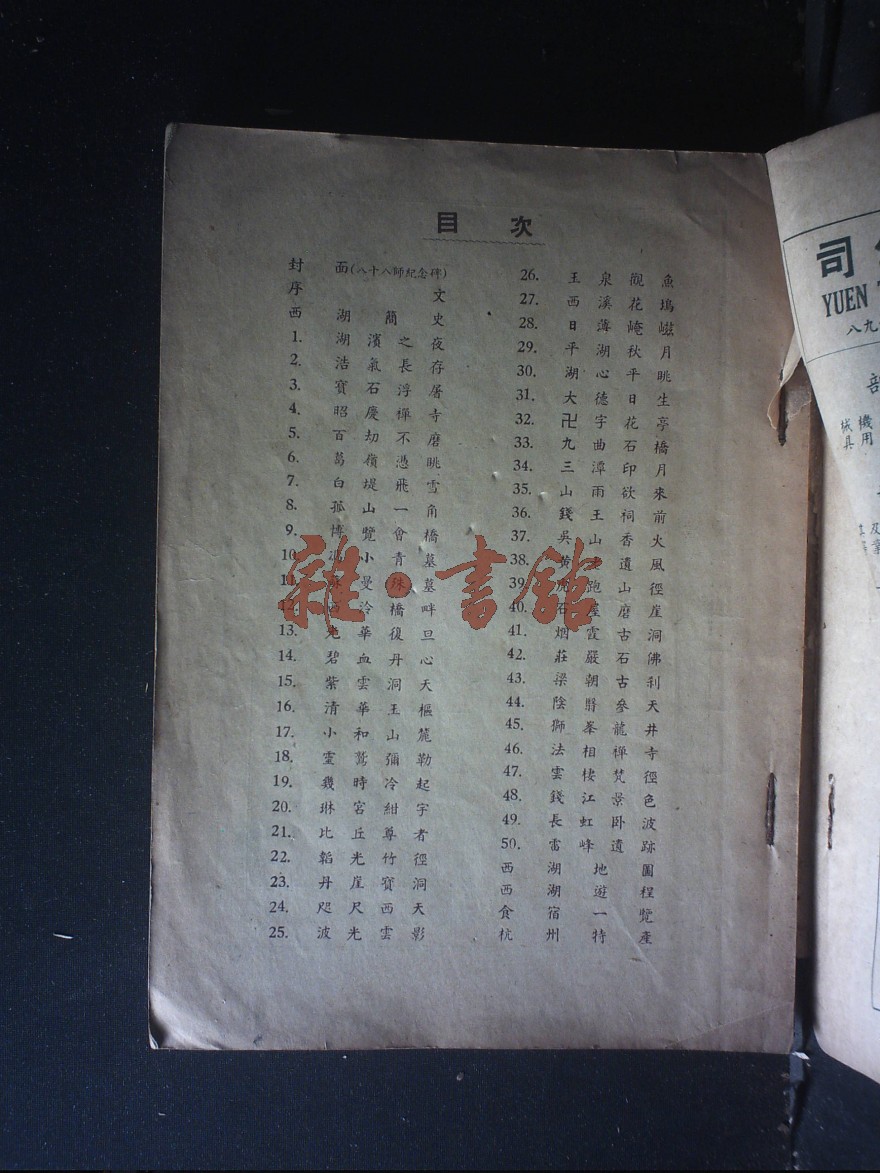 目次
封面(八十八師紀念碑)
序文
西湖簡史
1. 湖濱之夜
2. 浩氣長存
3. 寶石浮屠
4. 昭慶禪寺
5. 百劫不磨
6. 葛嶺憑眺
7. 白堤飛雪
8. 孤山一角
9. 博覽會橋
10. 馮小青墓
11. 蘇曼殊墓
12. 西泠橋畔
13. 光華復旦
14. 碧血丹心
15. 紫雲洞天
16. 清華玉樞
17. 小和山麓
18. 靈鷲彌勒
19. 幾時冷起
20. 琳宮紺宇
21. 比丘尊者
22. 韜光竹徑
23. 丹崖寶洞
24. 咫尺西天
25. 波光雲影
26. 玉泉觀魚
27. 西溪花塢
28. 日薄崦嵫
29. 平湖秋月
30. 湖心平眺
31. 大德日生
32. 卍字花亭
33. 九曲石橋
34. 三潭印月
35. 山雨欲來
36. 錢王祠前
37. 吳山香火
38. 黃遺風
39. 虎跑山徑
40. 石屋磨崖
41. 烟霞古洞
42. 莊嚴石佛
43. 梁朝古利
44. 陰翳參天
45. 獅峯龍井
46. 法相禪寺
47. 雲棲梵徑
48. 錢江景色
49. 長虹卧波
50. 雷峰遺跡
西湖地圖
西湖遊程
食宿一覽
杭州特產
雜·書館
司
YUEN
八九
部
機械
用具
及